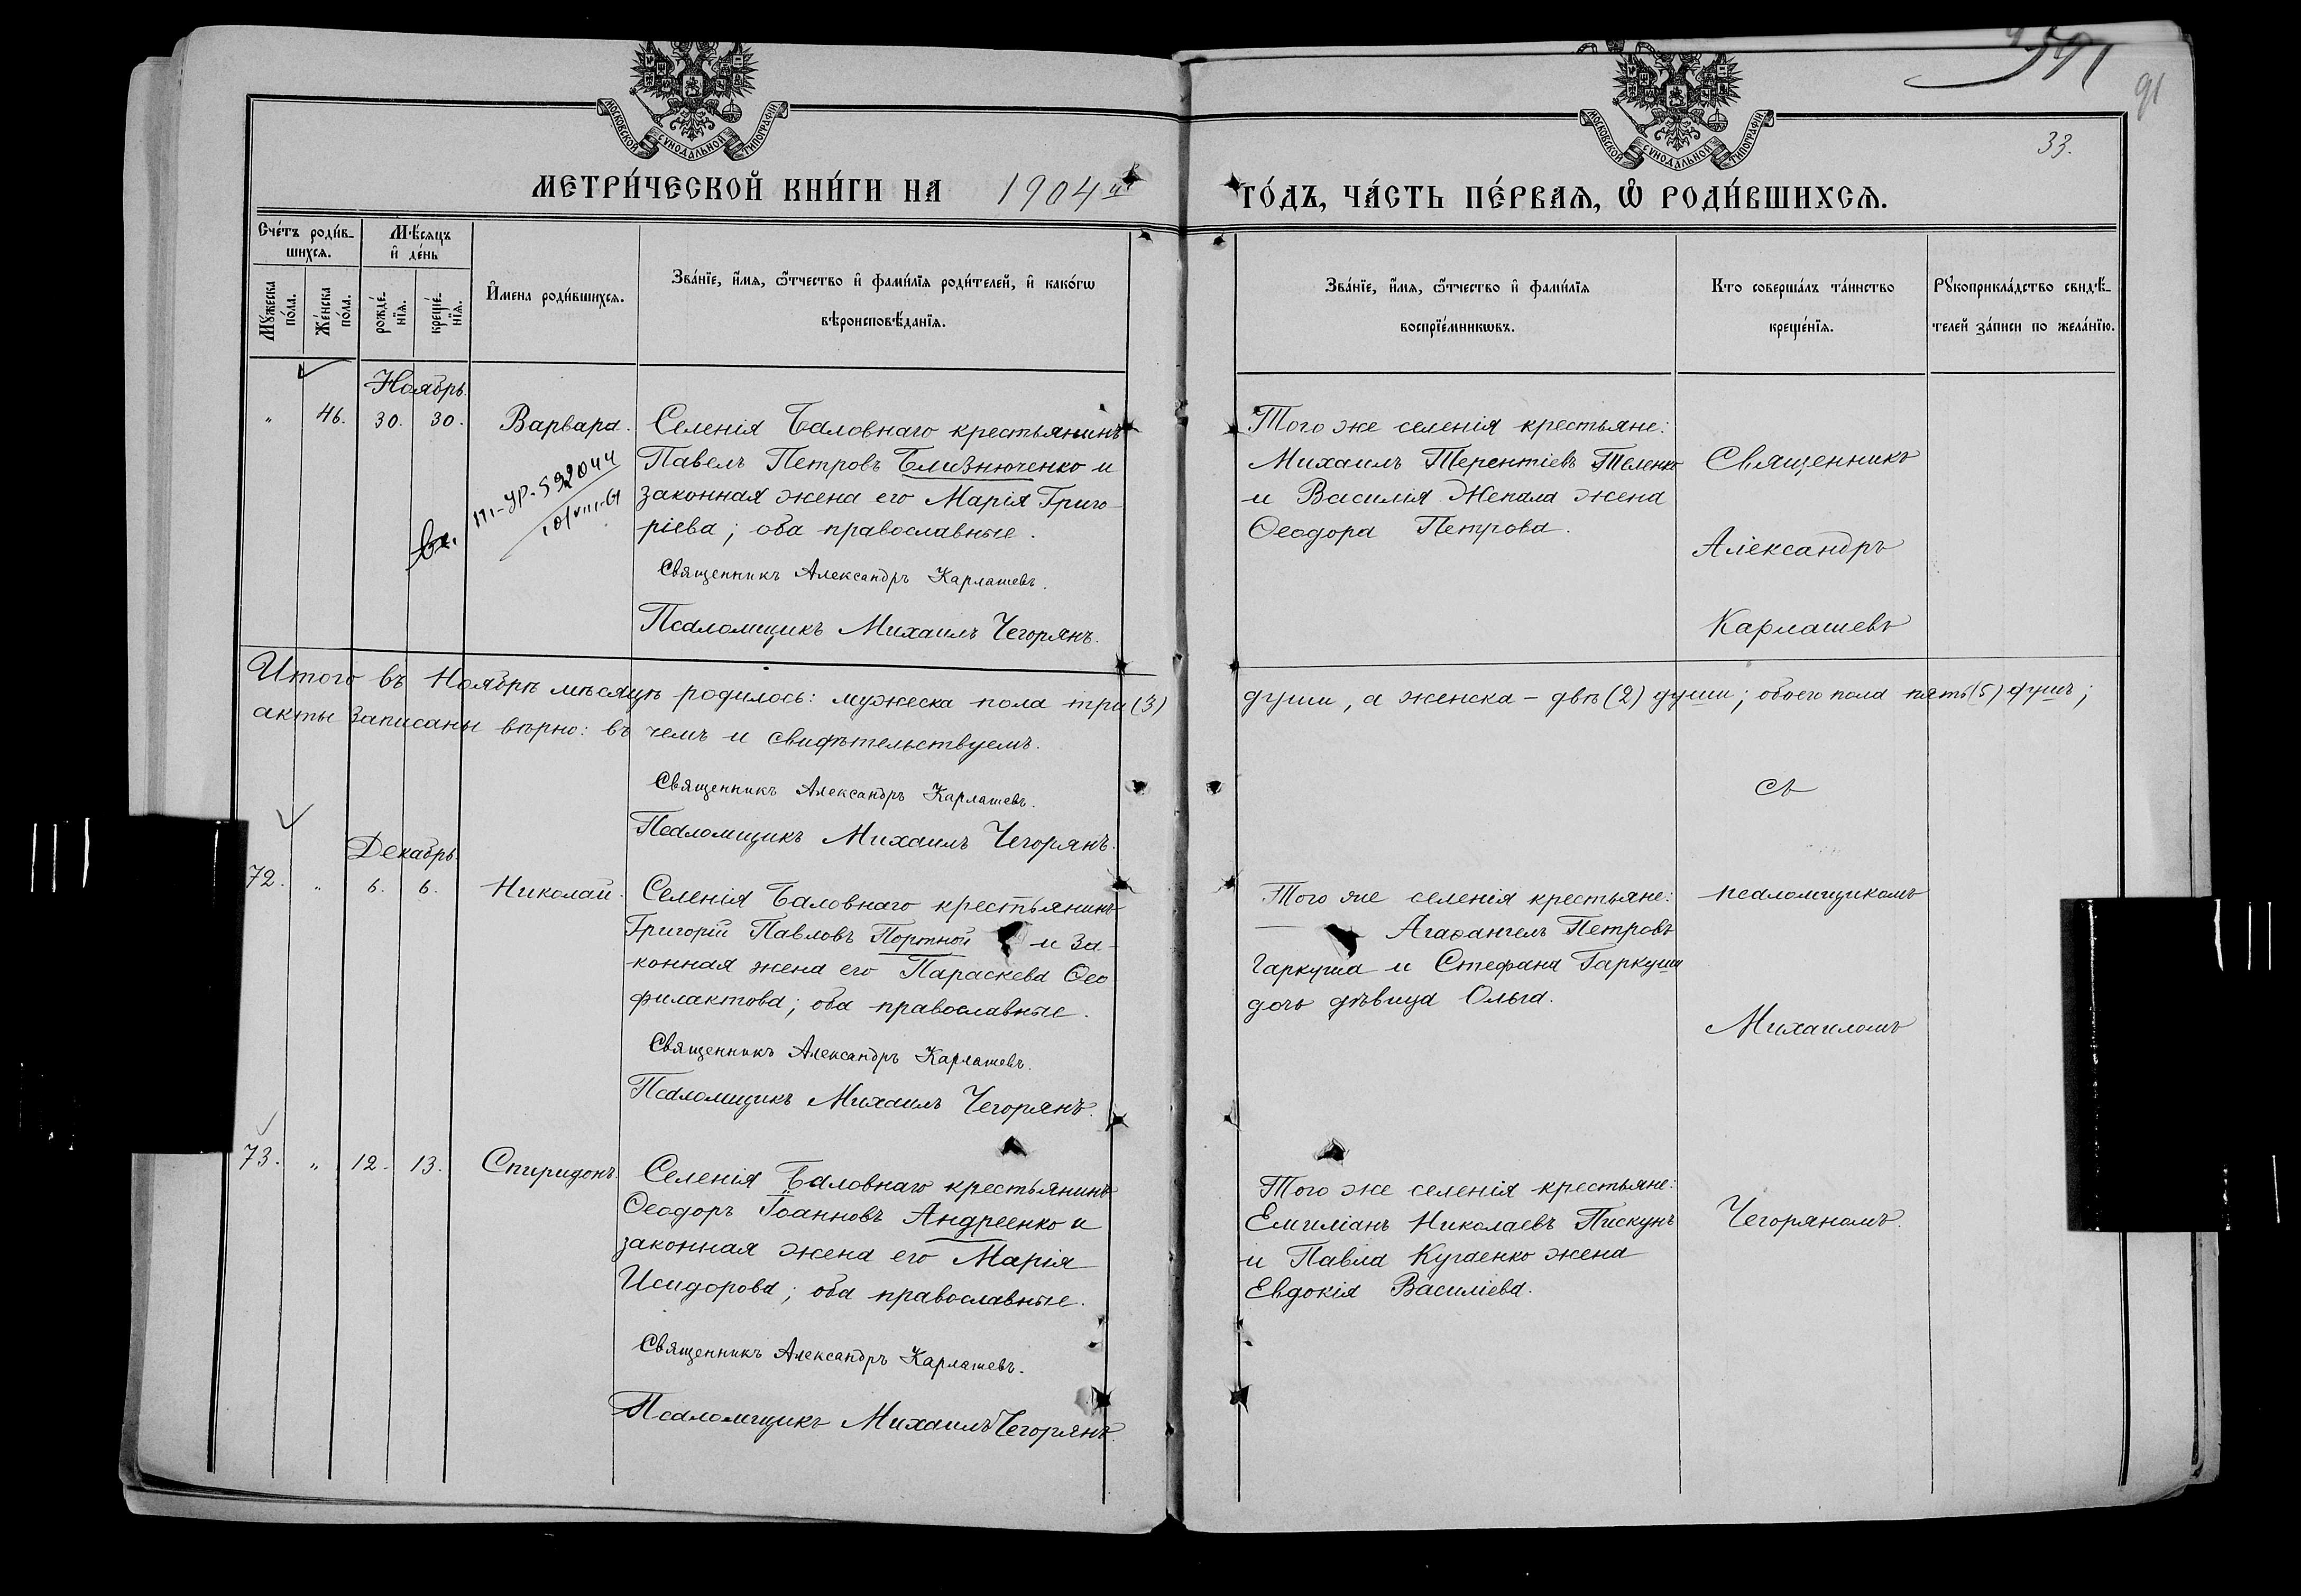 91
33.
МОСКОВСКОЙ СУНОДАЛЬНОЙ ТИПОГРАФІИ
МОСКОВСКОЙ СУНОДАЛЬНОЙ ТИПОГРАФІИ
МЕТРИ́ЧЕСКОЙ КНИ́ГИ НА 1904й
ГО́ДЪ, ЧА́СТЬ ПЕ́РВАЯ, Ѽ РОДИ́ВШИХСЯ.
Сче́тъ роди́в-
шихся.
Мꙋжеска по́ла.
Же́нска по́ла.
Мѣ́сяцъ
и҆ де́нь
рожде́-
нїя.
креще́-
нїя.
И҆мена роди́вшихся.
Зва́нїе, и҆́мя, ѻ҆́тчество и҆ фами́лїя роди́телей, и҆ како́гѡ
вѣроисповѣ́данїя.
Зва́нїе, и҆́мя, ѻ҆́тчество и҆ фами́лїя
воспрїе́мникѡвъ.
Кто соверша́лъ та́инство
креще́нїя.
Рꙋкоприкла́дство свидѣ́-
телей за́писи по жела́нїю.
Ноябрь.
" 46. 30. 30. Варвара.
Селенія Баловнаго крестьянинъ
Павелъ Петровъ Близнюченко и
законная жена его Марія Григо-
ріева; оба православные.
Священникъ Александръ Карлашевъ.
Псаломщикъ Михаилъ Чегорянъ.
Того же селенія крестьяне:
Михаилъ Терентіевъ Теленко
и Василія Жепала жена
Ѳеодора Петрова.
Священникъ
Александръ
Карлашевъ
Итого въ Ноябрѣ мѣсяцѣ родилось: мужеска пола три (3) души, а женска - двѣ (2) души; обоего пола пять (5) душъ;
акты записаны вѣрно: въ чемъ и свидѣтельствуемъ.
Священникъ Александръ Карлашевъ.
Псаломщикъ Михаилъ Чегорянъ.
съ
Декабрь.
72. " 6. 6. Николай.
Селенія Баловнаго крестьянинъ
Григорій Павловъ Портной и за-
конная жена его Параскева Ѳео
филактова; оба православные.
Священникъ Александръ Карлашевъ.
Псаломщикъ Михаилъ Чегорянъ.
Того же селенія крестьяне:
Агаѳангелъ Петровъ
Гаркуша и Стефана Гаркуша
дочь дѣвица Ольга.
псаломщикомъ
Михаиломъ
73. " 12. 13. Спиридонъ.
Селенія Баловнаго крестьянинъ
Ѳеодоръ Іоанновъ Андреенко и
законная жена его Марія
Исидорова; оба православные.
Священникъ Александръ Карлашевъ.
Псаломщикъ Михаилъ Чегорянъ.
Того же селенія крестьяне:
Емиліанъ Николаевъ Пискунъ
и Павла Кугаенко жена
Евдокія Василіева.
Чегоряномъ.